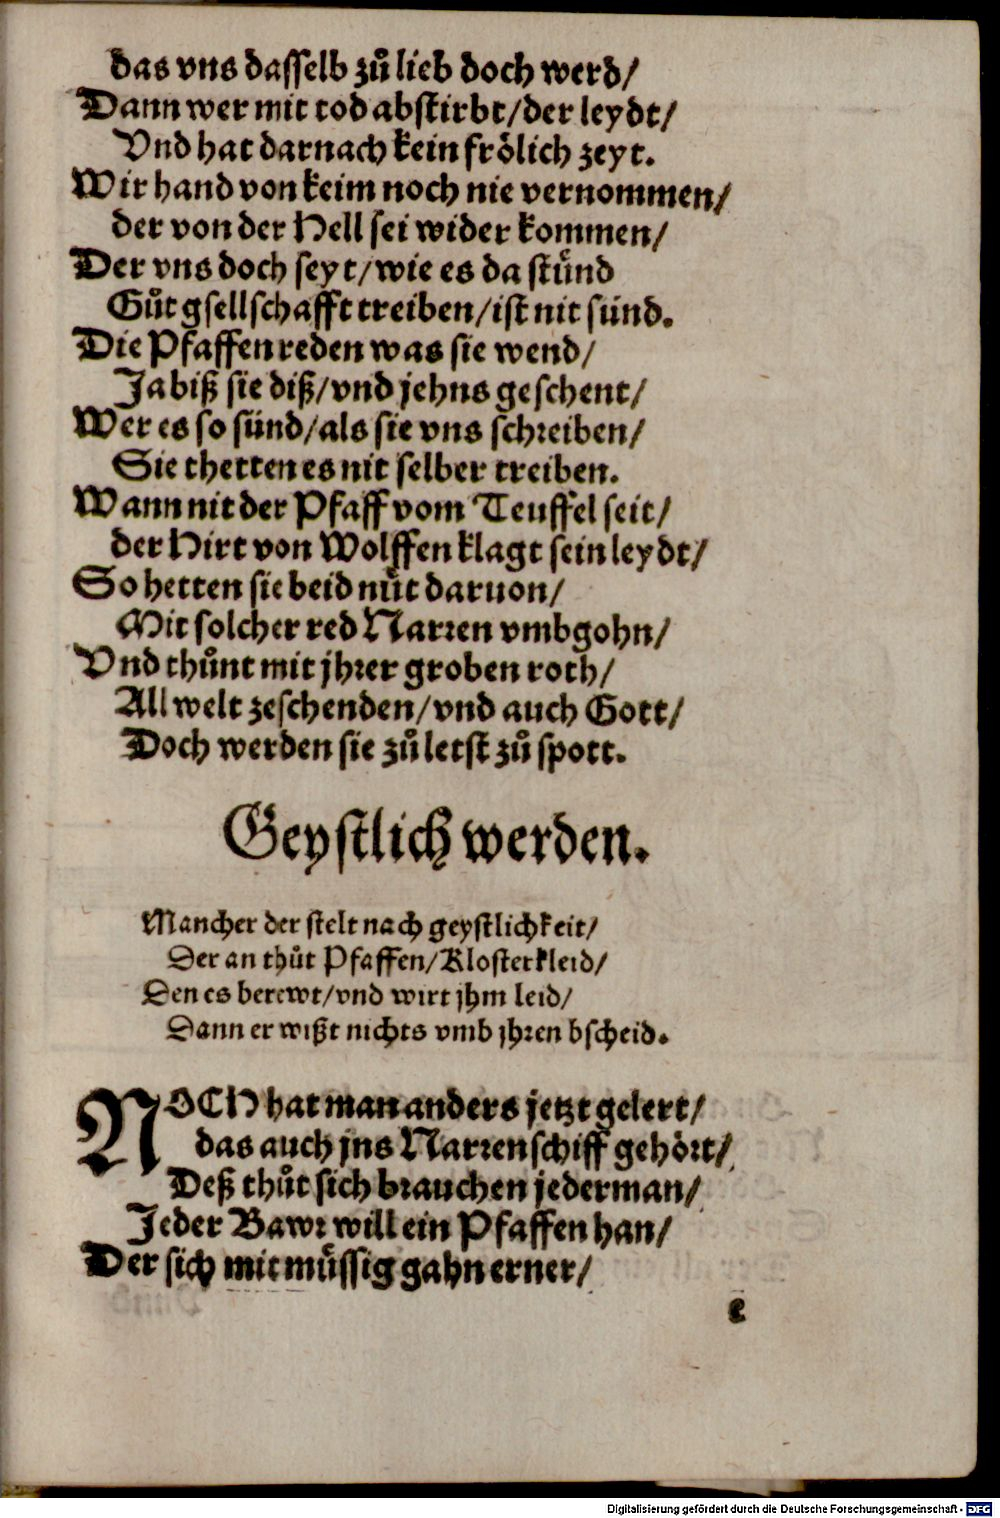 das vns dasselb zuͦ lieb doch werd/
Dann wer mit tod abstirbt/der leydt/
Vnd hat darnach kein froͤlich zeyt.
Wir hand von keim noch nie vernommen/
der von der Hell sei wider kommen/
Der vns doch seyt/wie es da stuͤnd
Guͦt gsellschafft treiben/ist nit sünd.
Die Pfaffen reden was sie wend/
Ja biß sie diß/vnd jehns geschent/
Wer es so sünd/als sie vns schreiben/
Sie thetten es nit selber treiben.
Wann nit der Pfaff vom Teuffel seit/
der Hirt von Wolffen klagt sein leydt/
So hetten sie beid nuͤt daruon/
Mit solcher red Narren vmbgohn/
Vnd thuͦnt mit jhrer groben roth/
All welt zeschenden/vnd auch Gott/
Doch werden sie zuͦ letst zuͦ spott.
Geystlich werden.
Mancher der stelt nach geystlichkeit/
Der an thuͦt Pfaffen/Klosterkleid/
Den es berewt/vnd wirt jhm leid/
Dann er wißt nichts vmb jhren bscheid.
NOCH hat man anders jetzt gelert/
das auch jns Narrenschiff gehoͤrt/
Deß thuͦt sich brauchen jederman/
Jeder Bawr will ein Pfaffen han/
Der sich mit muͤssig gahn erner/
e
Digitalisierung gefördert durch die Deutsche Forschungsgemeinschaft - DFG